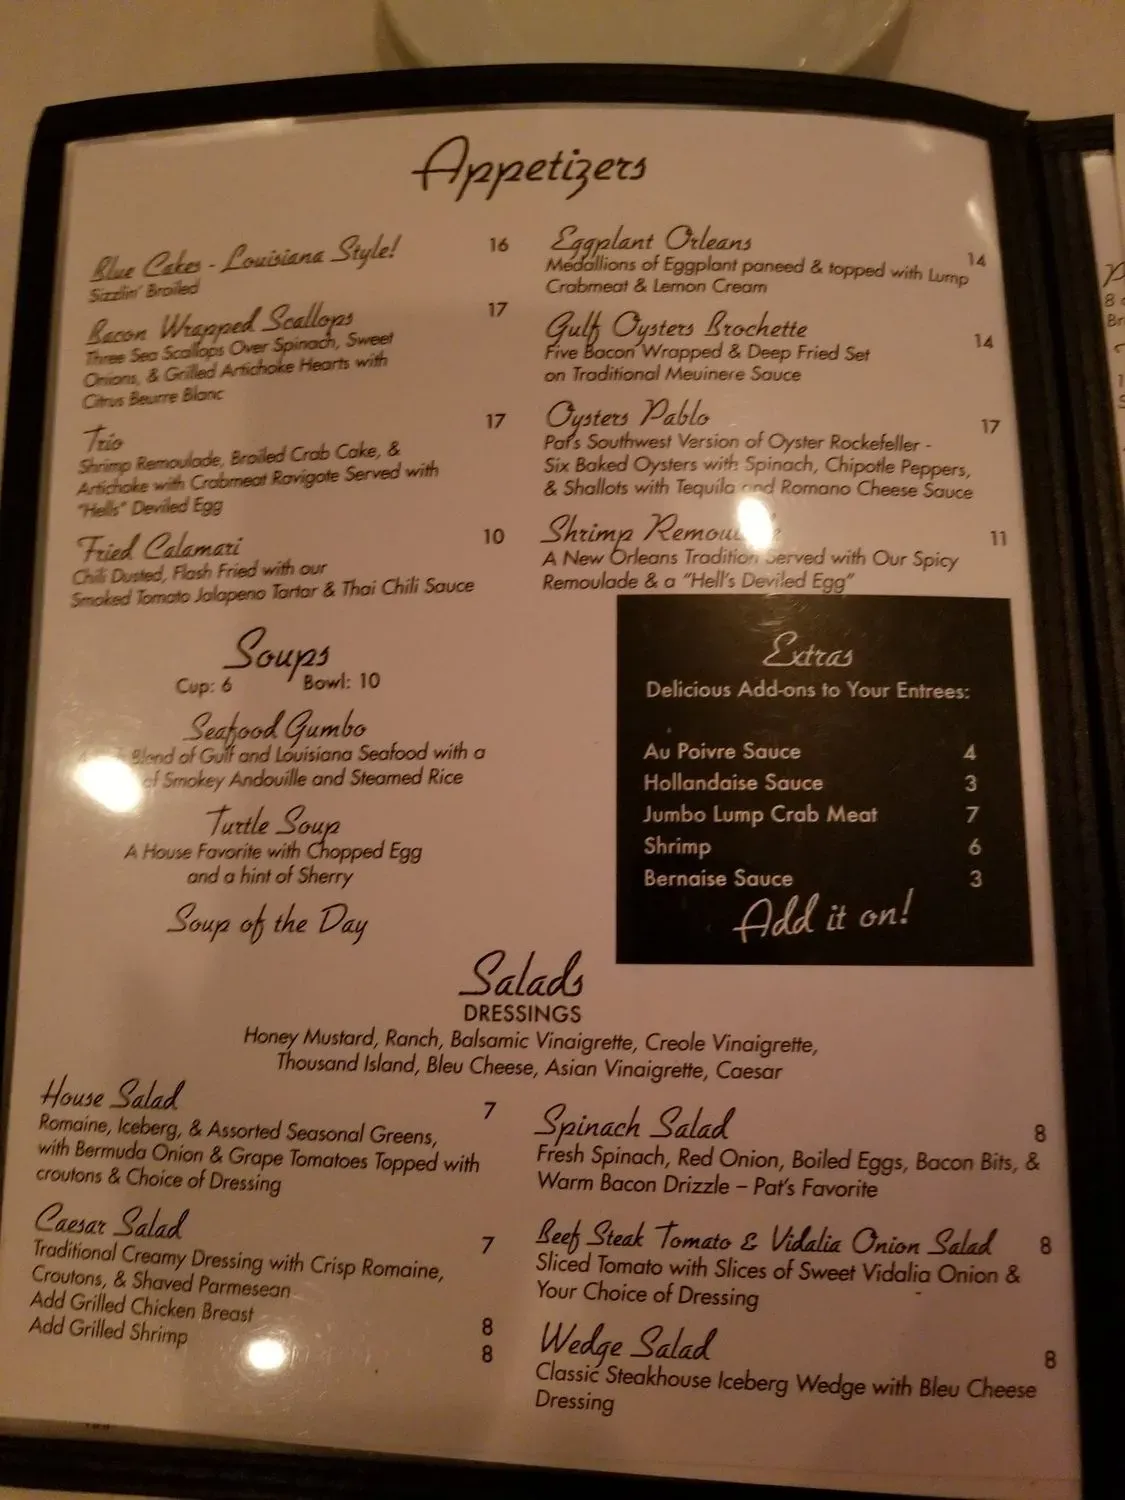 Appetizers
Blue Cakes - Louisiana Style! 16
Sizzlin' Broiled
Bacon Wrapped Scallops 17
Three Sea Scallops Over Spinach, Sweet
Onions, & Grilled Artichoke Hearts with
Citrus Beurre Blanc
Trio 17
Shrimp Remoulade, Broiled Crab Cake, &
Artichoke with Crabmeat Ravigote Served with
"Hells" Deviled Egg
Fried Calamari 10
Chili Dusted, Flash Fried with our
Smoked Tomato Jalapeno Tartar & Thai Chili Sauce
Eggplant Orleans 14
Medallions of Eggplant paneed & topped with Lump
Crabmeat & Lemon Cream
Gulf Oysters Brochette 14
Five Bacon Wrapped & Deep Fried Set
on Traditional Meuinere Sauce
Oysters Pablo 17
Pat's Southwest Version of Oyster Rockefeller -
Six Baked Oysters with Spinach, Chipotle Peppers,
& Shallots with Tequila and Romano Cheese Sauce
Shrimp 11
A New Orleans Tradition Served with Our Spicy
Remoulade & a "Hell's Deviled Egg"
Soups
Cup: 6 Bowl: 10
Seafood Gumbo
Blend of Gulf and Louisiana Seafood with a
of Smokey Andouille and Steamed Rice
Turtle Soup
A House Favorite with Chopped Egg
and a hint of Sherry
Soup of the Day
Extras
Delicious Add-ons to Your Entrees:
Au Poivre Sauce 4
Hollandaise Sauce 3
Jumbo Lump Crab Meat 7
Shrimp 6
Bernaise Sauce 3
Add it on!
Salads
DRESSINGS
Honey Mustard, Ranch, Balsamic Vinaigrette, Creole Vinaigrette,
Thousand Island, Bleu Cheese, Asian Vinaigrette, Caesar
House Salad 7
Romaine, Iceberg, & Assorted Seasonal Greens,
with Bermuda Onion & Grape Tomatoes Topped with
croutons & Choice of Dressing
Caesar Salad 7
Traditional Creamy Dressing with Crisp Romaine,
Croutons, & Shaved Parmesean
Add Grilled Chicken Breast 8
Add Grilled Shrimp 8
Spinach Salad 8
Fresh Spinach, Red Onion, Boiled Eggs, Bacon Bits, &
Warm Bacon Drizzle – Pat's Favorite
Beef Steak Tomato & Vidalia Onion Salad 8
Sliced Tomato with Slices of Sweet Vidalia Onion &
Your Choice of Dressing
Wedge Salad 8
Classic Steakhouse Iceberg Wedge with Bleu Cheese
Dressing